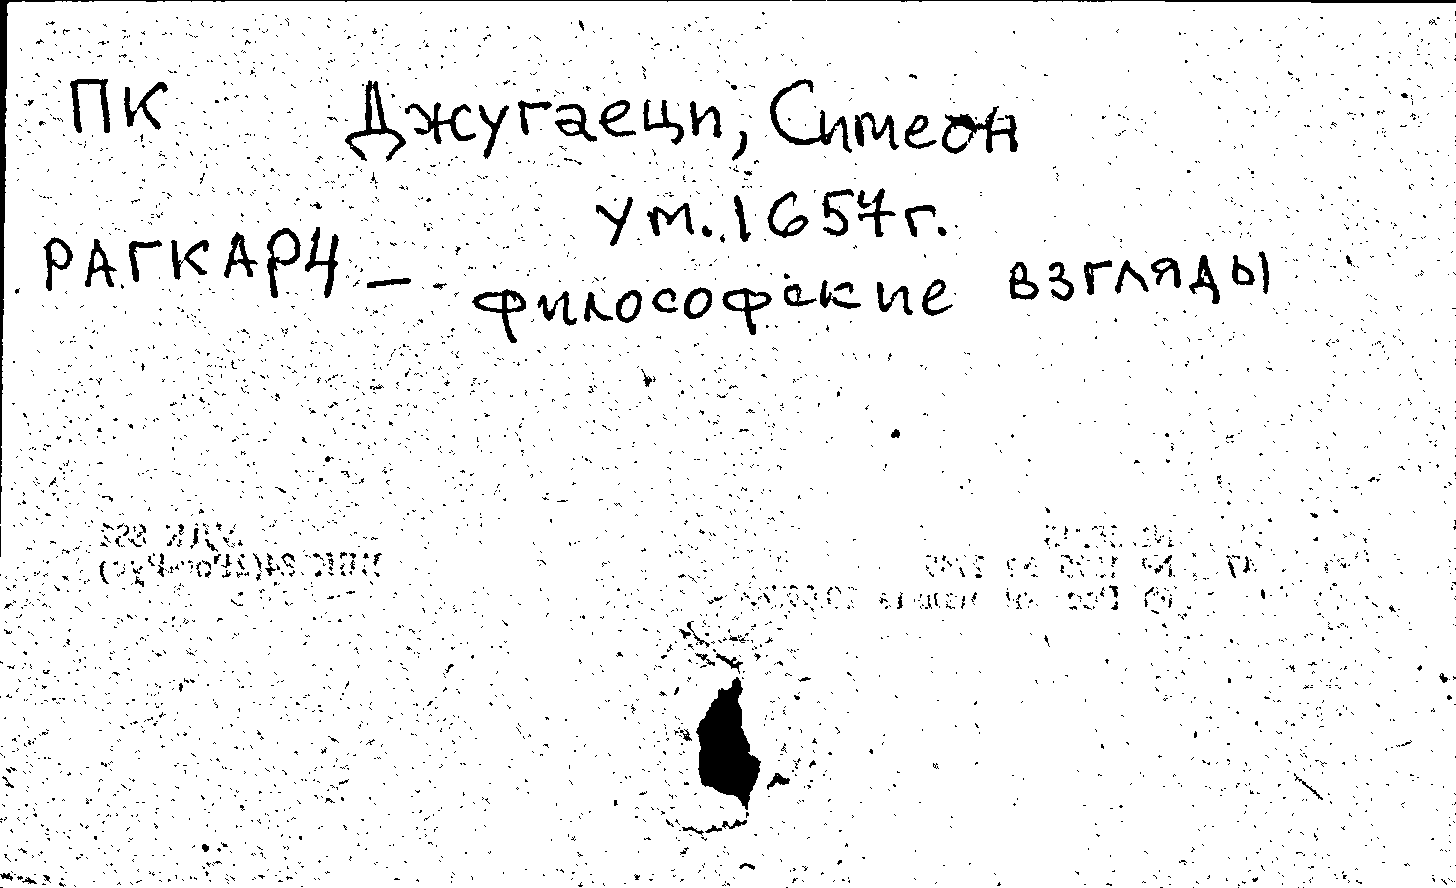 ПК Джугаеци, Симеон
ум. 1657 г.
РАГКАР4 – философские взгляды